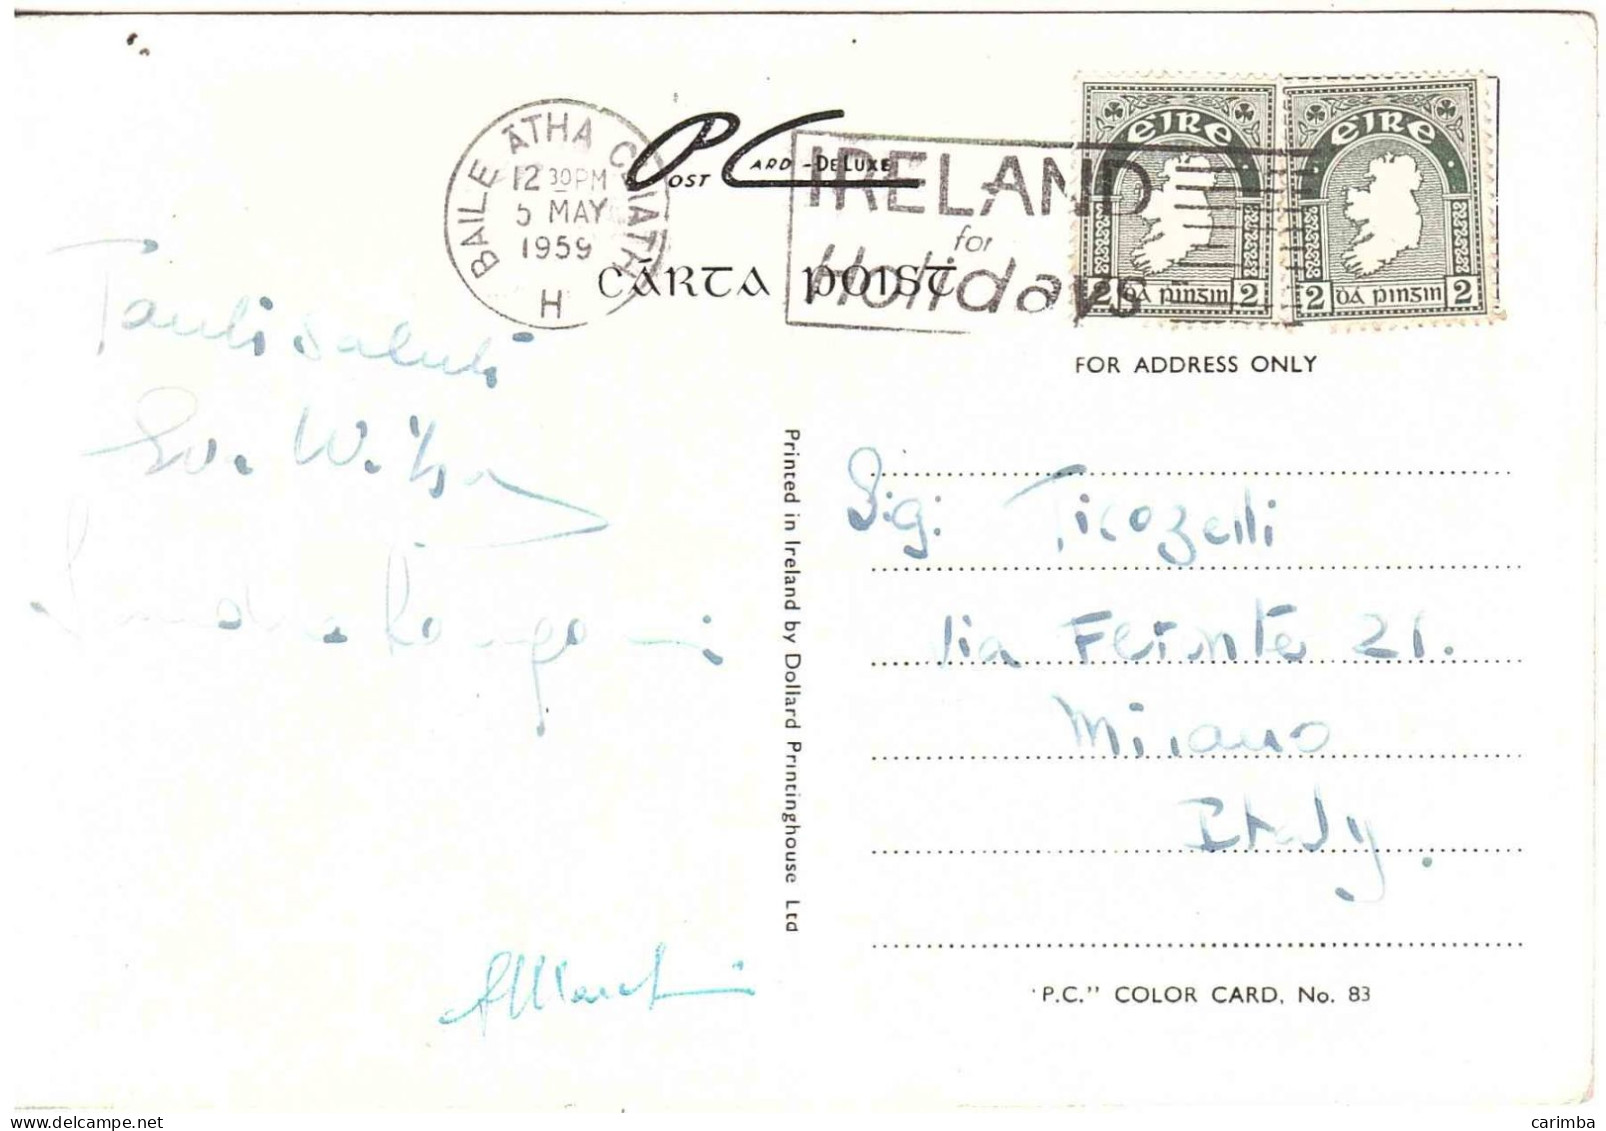 BAILE ÁTHA CLIATH
12 30 PM
5 MAY
1959
H
POST CARD - DE LUXE
IRELAND
for
Holidays
CÁRTA POIST
éIRe
2 Dá pinᵹin 2
éIRe
2 Dá pinᵹin 2
FOR ADDRESS ONLY
Tanti saluti
Sig. Ticozelli
Via
21.
Milano
Italy.
Printed in Ireland by Dollard Printinghouse Ltd
'P.C." COLOR CARD, No. 83
carimba